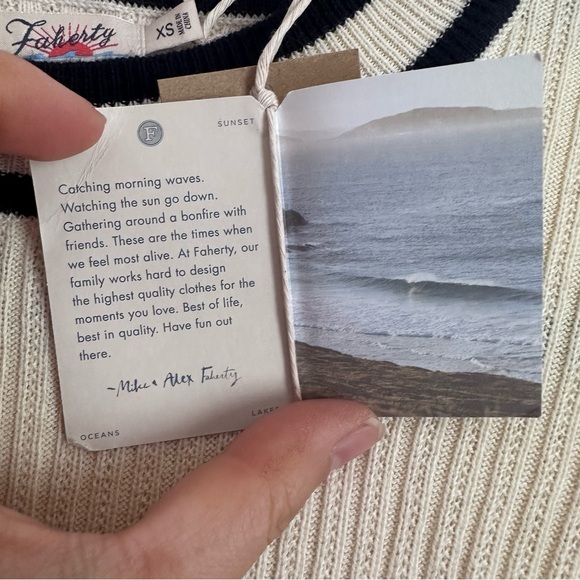 Faherty
XS
MADE IN
CHINA
F
SUNSET
Catching morning waves.
Watching the sun go down.
Gathering around a bonfire with
friends. These are the times when
we feel most alive. At Faherty, our
family works hard to design
the highest quality clothes for the
moments you love. Best of life,
best in quality. Have fun out
there.
~Mike & Alex Faherty
OCEANS